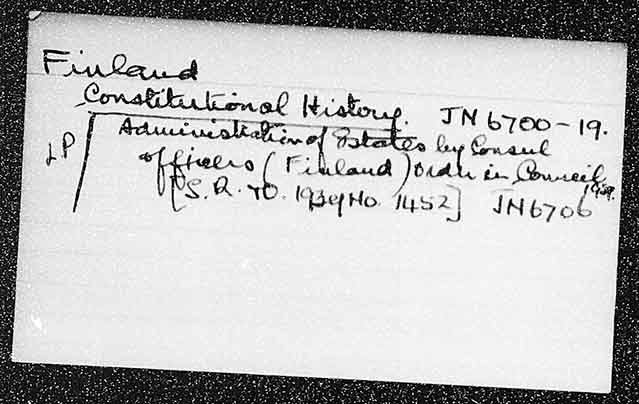 Finland
Constitutional History. JN 6700-19.
LP Administration of Estates by Consul
officers (Finland) Order in Council, 1939.
[S.R. & O. 1939 No. 1452] JN6706